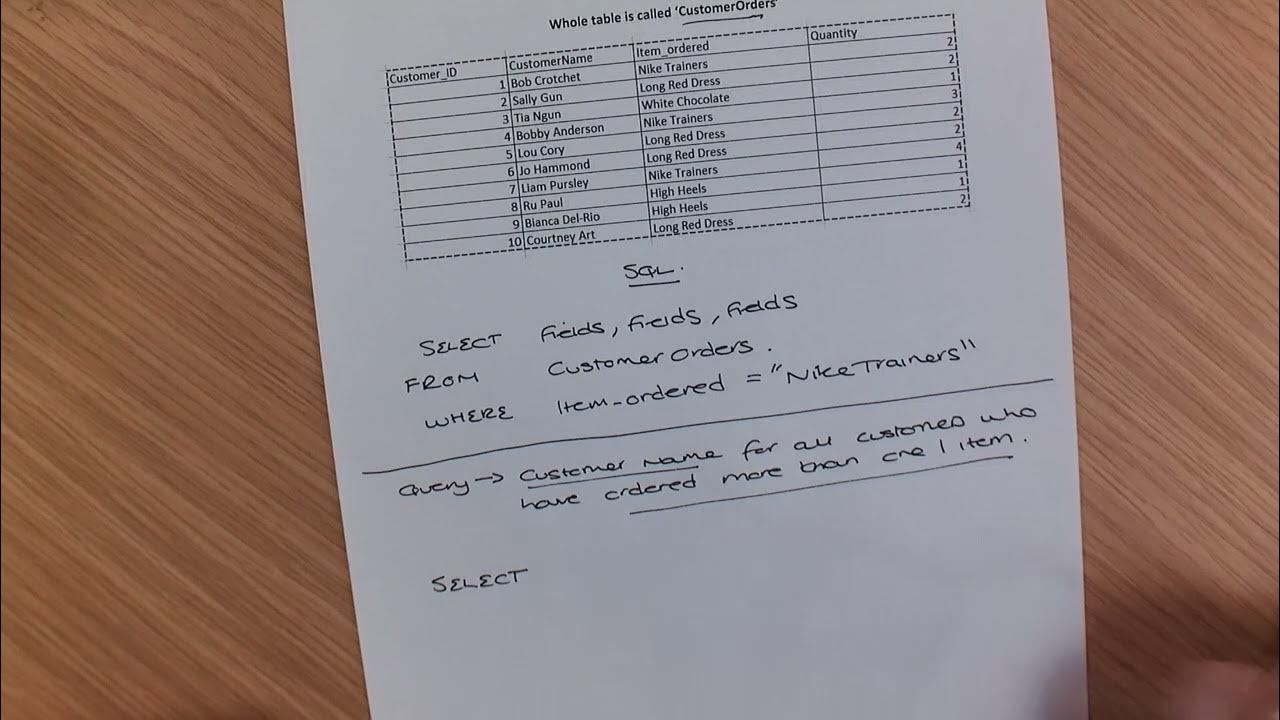 Whole table is called 'CustomerOrders'
Customer_ID CustomerName Item_ordered Quantity
1 Bob Crotchet Nike Trainers 2
2 Sally Gun Long Red Dress 2
3 Tia Ngun White Chocolate 1
4 Bobby Anderson Nike Trainers 3
5 Lou Cory Long Red Dress 2
6 Jo Hammond Long Red Dress 2
7 Liam Pursley Nike Trainers 4
8 Ru Paul High Heels 1
9 Bianca Del-Rio High Heels 1
10 Courtney Art Long Red Dress 2
SQL.
SELECT fields, fields, fields
FROM CustomerOrders.
WHERE Item_ordered = "NikeTrainers"
Query → Customer Name for all customers who
have ordered more than one 1 item.
SELECT